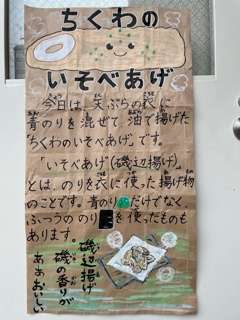 ちくわの
いそべあげ
今日は、天ぷらの衣に
青のりを混ぜて油で揚げた
「ちくわのいそべあげ」です。
「いそべあげ」(磯辺揚げ)
とは、のりを衣に使った揚げ物
のことです。青のりだけでなく、
ふつうののりを使ったものも
あります。
磯辺揚げ
磯の香りが
ああおいしい